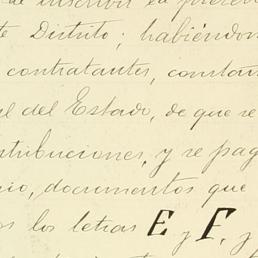 de inscribir en
te Distrito; habiéndos
contratantes, constan
l del Estado, de que se
ntribuciones, y se pag
io, documentos que
os los letras E y F, y